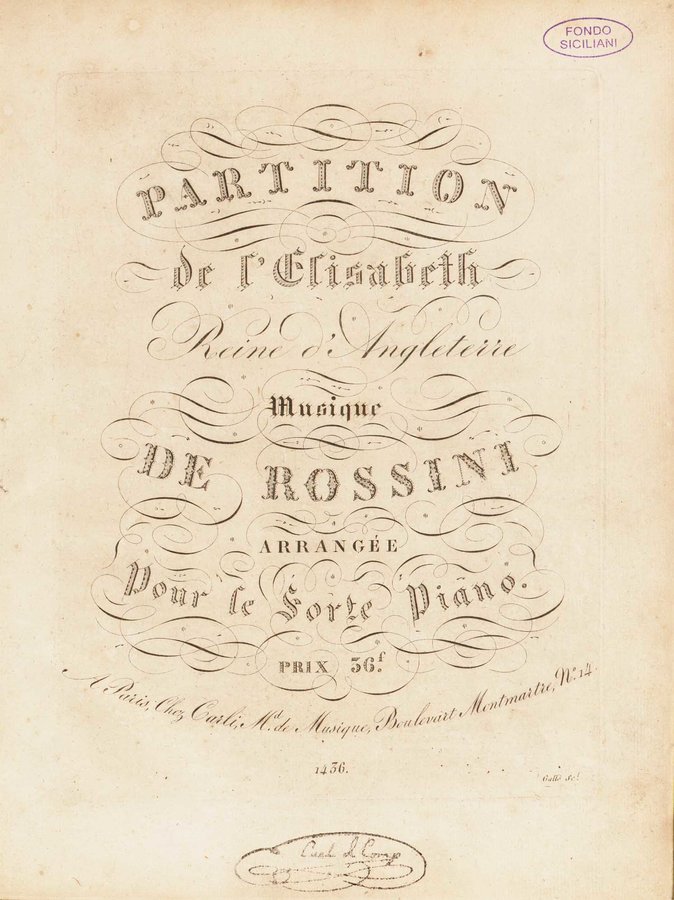 FONDO
SICILIANI
PARTITION
de l'Elisabeth
Reine d'Angleterre
Musique
DE ROSSINI
ARRANGÉE
Pour le Forte Piano.
PRIX 36.f
A Paris, Chez Carli, M.d de Musique, Boulevart Montmartre, N.o 14.
1436.